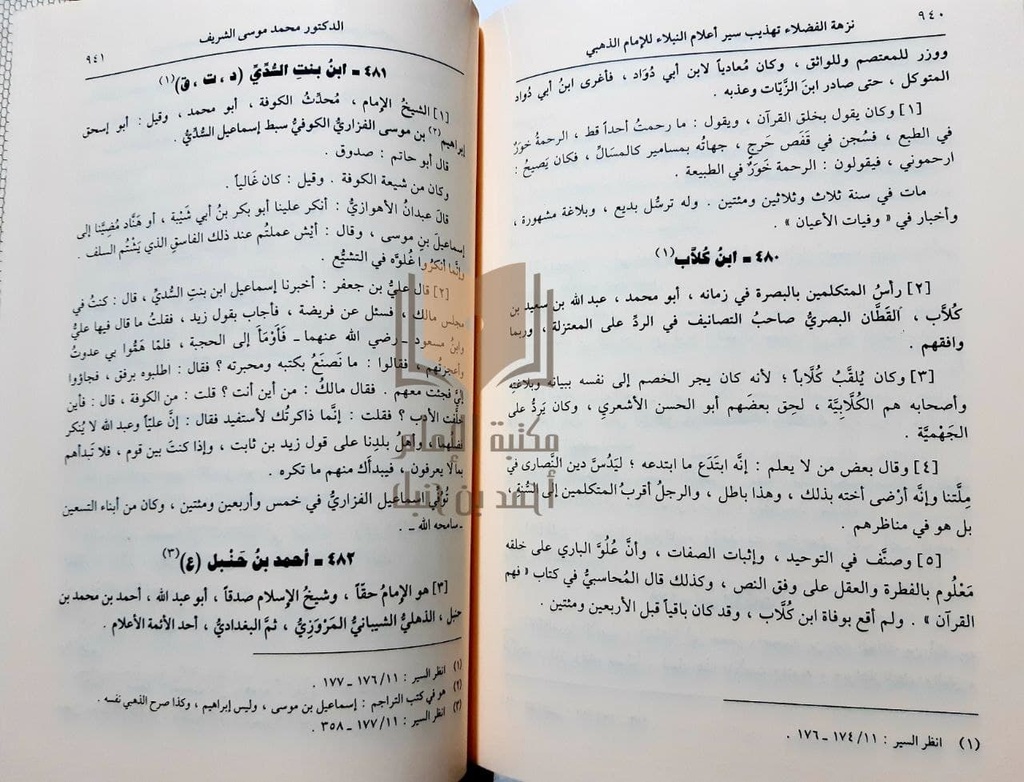 ٩٤٠
نزهة الفضلاء تهذيب سير أعلام النبلاء للإمام الذهبي
ووزر للمعتصم وللواثق ، وكان مُعادياً لابن أبي دُوَاد ، فأغرى ابنُ أبي دُواد
المتوكل ، حتى صادر ابنَ الزَّيَّات وعذبه .
[١] وكان يقول بخلق القرآن ، ويقول : ما رحمتُ أحداً قط ، الرحمةُ خَوَرٌ
في الطبع ، فسُجن في قَفَص حَرِجٍ ، جهاتُه بمسامير كالمسَالِّ ، فكان يَصيحُ :
ارحموني ، فيقولون : الرحمة خَوَرٌ في الطبيعة .
مات في سنة ثلاث وثلاثين ومئتين . وله ترسُّل بديع ، وبلاغة مشهورة ،
وأخبار في « وفيات الأعيان » .
٤٨٠ - ابنُ كُلاَّب (١)
[٢] رأسُ المتكلمين بالبصرة في زمانه ، أبو محمد ، عبد الله بن سعيد بن
كُلاَّب ، القَطَّان البصريُّ صاحبُ التصانيف في الردِّ على المعتزلة ، وربما
وافقهم .
[٣] وكان يُلقَّبُ كُلَّاباً ؛ لأنه كان يجر الخصم إلى نفسه ببيانه وبلاغتِه
وأصحابه هم الكُلَّابيَّة ، لحِق بعضَهم أبو الحسن الأشعري ، وكان يَردُّ على
الجَهْميَّة .
[٤] وقال بعض من لا يعلم : إنَّه ابتدَع ما ابتدعه ؛ ليَدُسَّ دين النَّصارى في
مِلَّتنا وإنَّه أرْضى أخته بذلك ، وهذا باطل ، والرجلُ أقربُ المتكلمين إلى السُّنةِ
بل هو في مناظرهم .
[٥] وصنَّف في التوحيد ، وإثبات الصفات ، وأنَّ عُلُوَّ الباري على خلقه
مَعْلُوم بالفطرة والعقل على وفق النص ، وكذلك قال المُحاسبيُّ في كتاب « فهم
القرآن » . ولم أقع بوفاة ابن كُلَّاب ، وقد كان باقياً قبل الأربعين ومئتين .
(١) انظر السير : ١٧٤/١١ - ١٧٦ .
الدكتور محمد موسى الشريف
٩٤١
٤٨١ - ابنُ بنتِ السُّدِّيِّ (د ، ت ، ق) (١)
[١] الشيخُ الإمام ، مُحدِّثُ الكوفة ، أبو محمد ، وقيل : أبو إسحق
إبراهيم (٢) بن موسى الفزاريُّ الكوفيُّ سبط إسماعيل السُّدِّيِّ .
قال أبو حاتم : صدوق .
وكان من شيعة الكوفة . وقيل : كان غَالياً .
قالَ عبدانُ الأهوازيُّ : أنكر علينا أبو بكر بنُ أبي شَيْبة ، أو هَنَّاد مُضيَّنا إلى
إسماعيلَ بن موسى ، وقال : أيْش عملتُم عند ذلك الفاسقِ الذي يَشْتُم السلف .
وإنَّما أنكَرُوا غُلوَّه في التشيُّع .
[٢] قال عليُّ بن جعفر : أخبرنا إسماعيل ابن بنت السُّديِّ ، قال : كنتُ في
مجلس مالك ، فسئل عن فريضة ، فأجاب بقول زيد ، فقلتُ ما قال فيها عليٌّ
وابنُ مسعود - رضي الله عنهما - فَأَوْمَأ إلى الحجبة ، فلمَّا هَمُّوا بي عدوتُ
وأعجزتُهم ، فقالوا : ما نَصنَعُ بكتبه ومحبرته ؟ فقال : اطلبوه برفق ، فجاؤوا
إليَّ فجئت معهم . فقال مالكُ : من أين أنت ؟ قلت : من الكوفة ، قال : فأين
خلَّفت الأدب ؟ فقلت : إنَّما ذاكرتُك لأستفيد فقال : إنَّ عليّاً وعبد الله لا يُنكر
فضلُهما ، وأهلُ بلدنا على قول زيد بن ثابت ، وإذا كنتَ بين قوم ، فلا تَبدأهم
بما لا يعرفون ، فيبدأك منهم ما تكره .
تُوُفِّي إسماعيل الفزاريُّ في خمس وأربعين ومئتين ، وكان من أبناء التسعين
- سامحه الله - .
٤٨٢ - أحمد بنُ حَنْبل (ع) (٣)
[٣] هو الإمامُ حقّاً ، وشيخُ الإسلام صدقاً ، أبو عبد الله ، أحمد بن محمد بن
حنبل ، الذهليُّ الشيبانيُّ المَرْوَزِيُّ ، ثمَّ البغداديُّ ، أحد الأئمة الأعلام .
(١) انظر السير : ١٧٦/١١ - ١٧٧ .
(٢) هو في كتب التراجم : إسماعيل بن موسى ، وليس إبراهيم ، وكذا صرح الذهبي نفسه .
(٣) انظر السير : ١٧٧/١١ - ٣٥٨ .
مكتبة العالم
أحمد بن حنبل